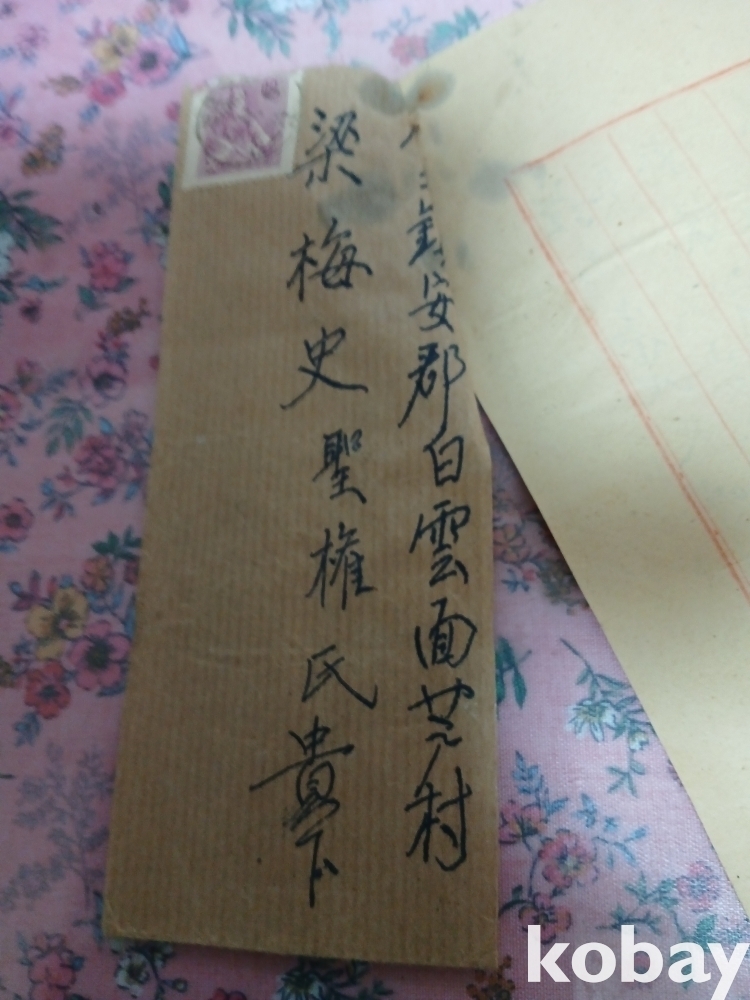 安郡白雲面芝村
梁梅史聖權氏貴下
kobay